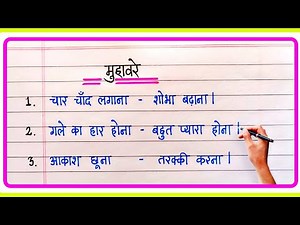 मुहावरे
1. चार चाँद लगाना - शोभा बढ़ाना।
2. गले का हार होना - बहुत प्यारा होना।
3. आकाश छूना - तरक्की करना।